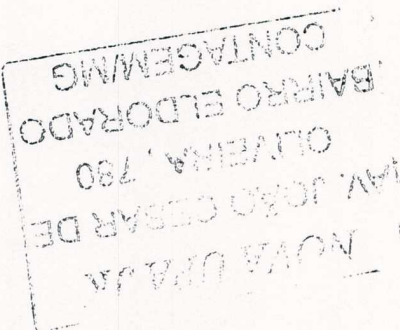 NOVA UPA JK
AV. JOÃO CESAR DE
OLIVEIRA, 780
BAIRRO ELDORADO
CONTAGEM/MG